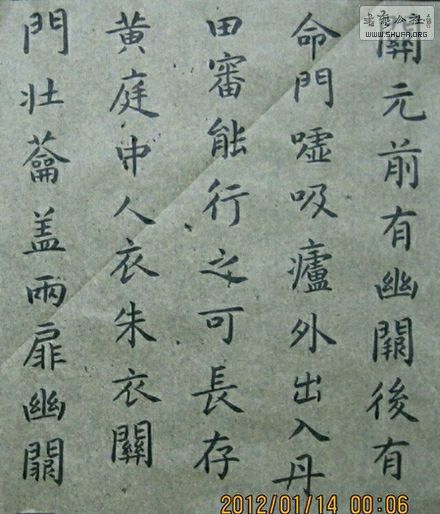 關元前有幽闕後有
命門噓吸廬外出入丹
田審能行之可長存
黃庭中人衣朱衣關
門壯蘥盖兩扉幽闕
书法公社
WWW.SHUFA.ORG
2012/01/14 00:06